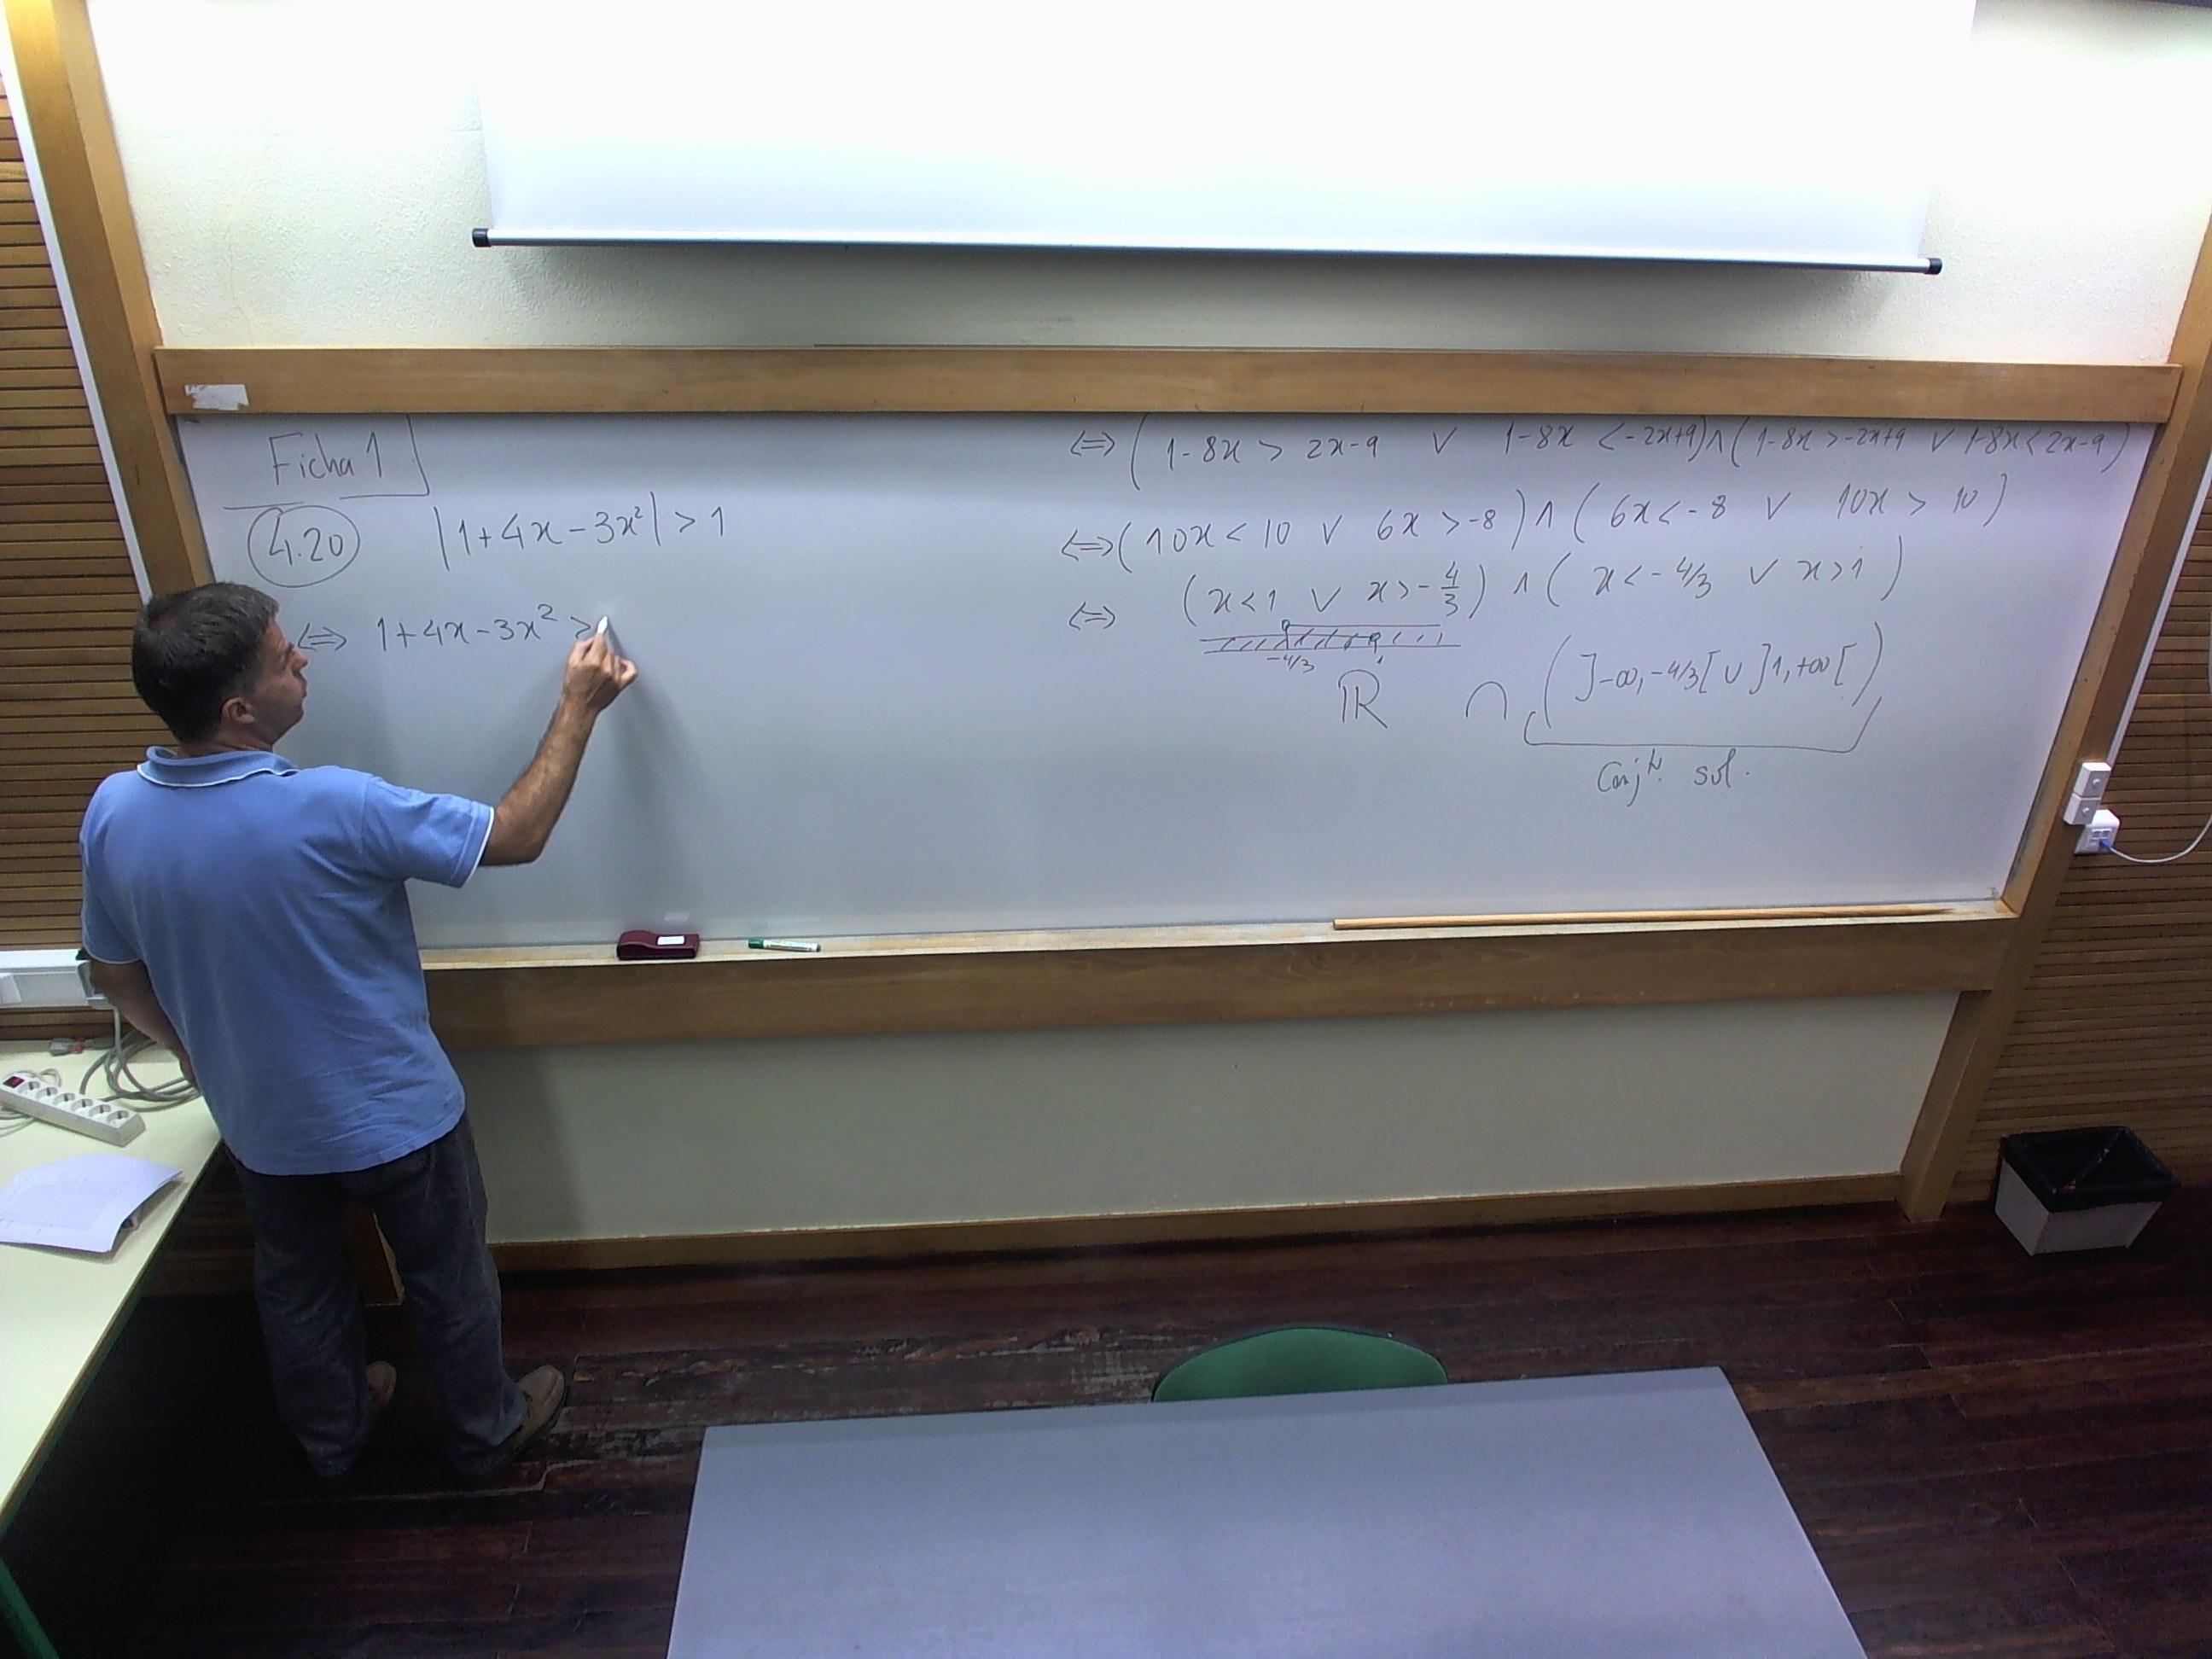 Ficha 1
4.20 |1+4x-3x²| > 1
⇔ 1+4x-3x² >
⇔ ( 1-8x > 2x-9 ∨ 1-8x < -2x+9) ∧ (1-8x > -2x+9 ∨ 1-8x < 2x-9 )
⇔ ( 10x < 10 ∨ 6x > -8 ) ∧ ( 6x < -8 ∨ 10x > 10 )
⇔ (x < 1 ∨ x > -4/3) ∧ ( x < -4/3 ∨ x > 1 )
-4/3 1
ℝ ∩ ( ]-∞, -4/3[ ∪ ]1, +∞[ )
Conjto. sol.